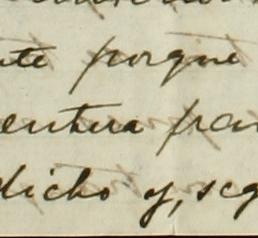 nte porque
entura fran
dicho y, seg